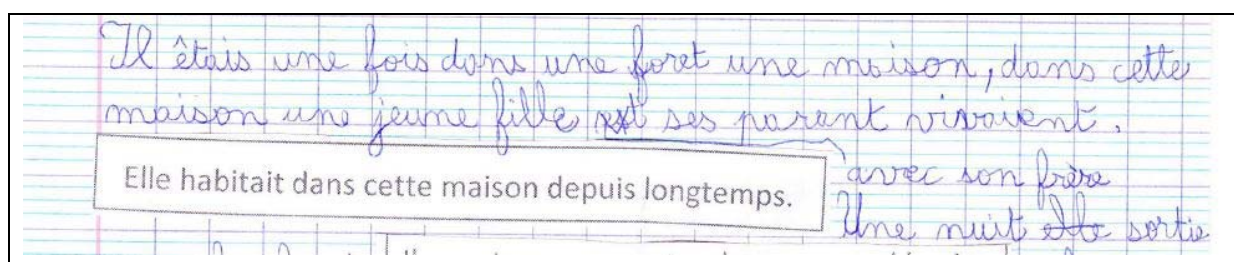 Il êtais une fois dans une foret une maison, dans cette
maison une jeune fille et ses parant vivaient.
Elle habitait dans cette maison depuis longtemps.
avec son frère
Une nuit elle sortie